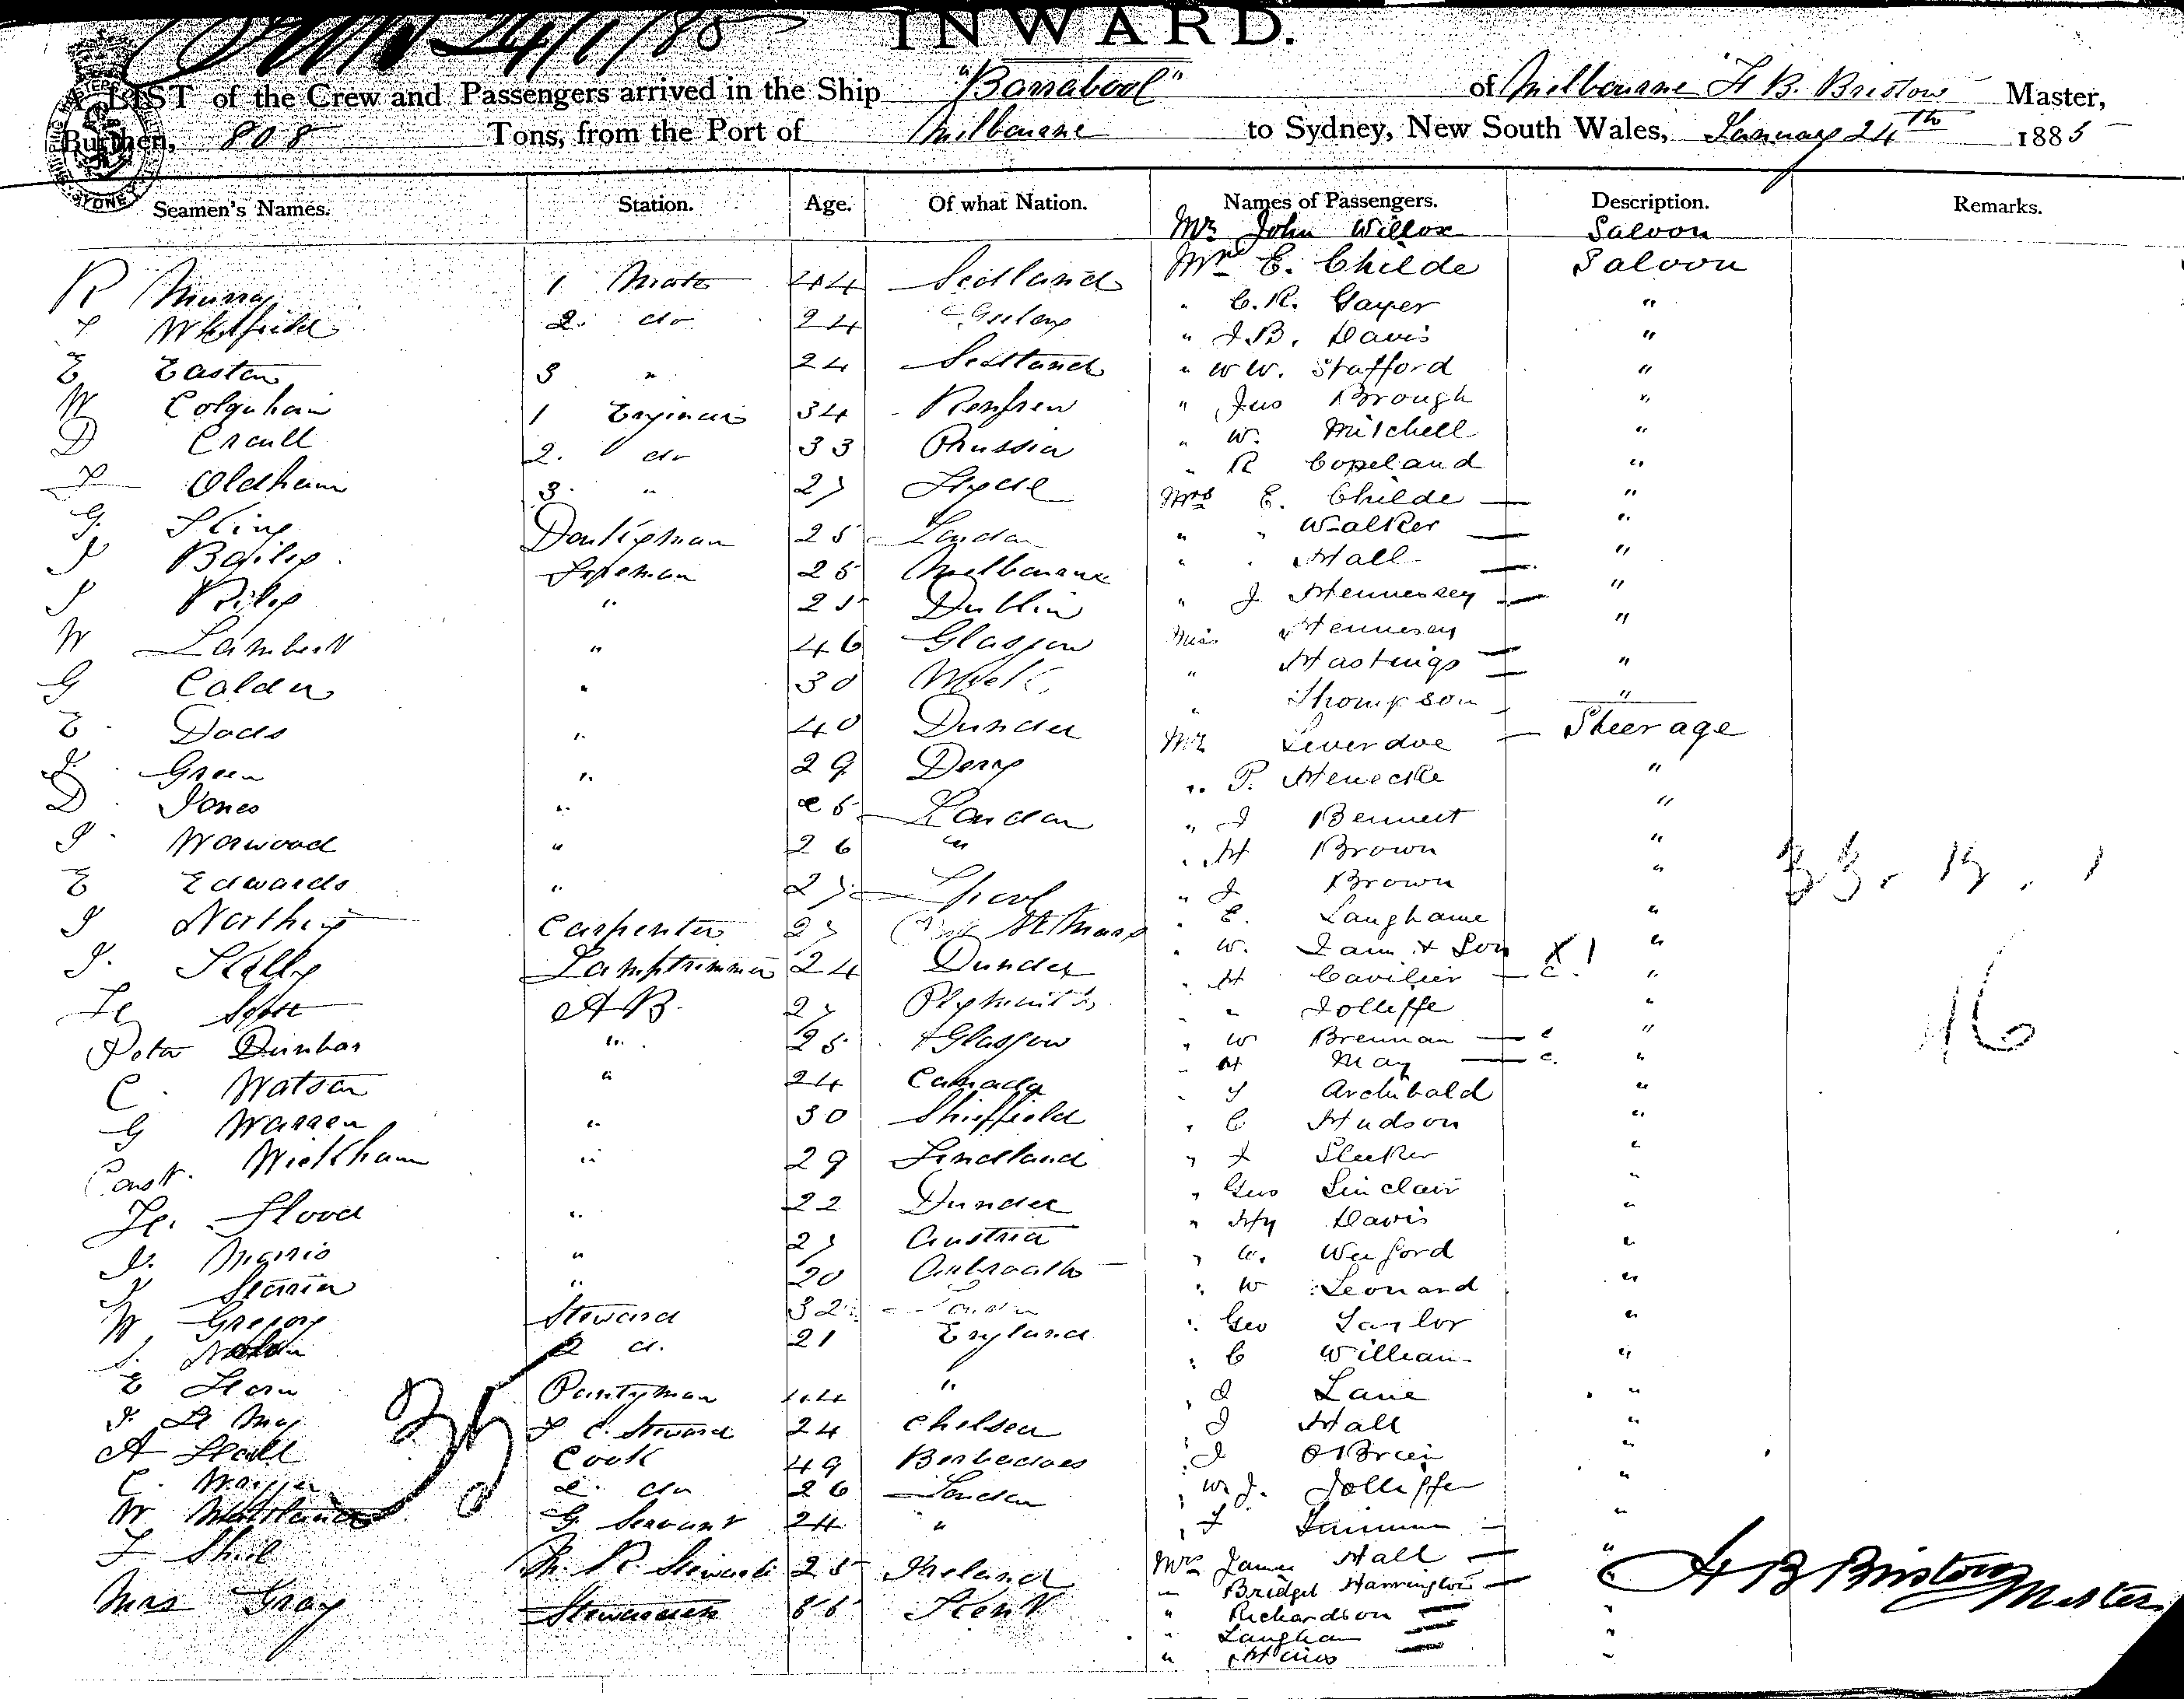 24/1/85
INWARD.
A LIST of the Crew and Passengers arrived in the Ship "Barrabool" of Melbourne H B. Bristow Master,
Burthen, 808 Tons, from the Port of Melbourne to Sydney, New South Wales, January 24th 1885
Seamen's Names. Station. Age. Of what Nation. Names of Passengers. Description. Remarks.
Mr John Willox Saloon
R Murray 1 Mate 44 Scotland Mr E. Childe Saloon
Whitfield 2. do 24 Geelong " C. R. Gayer "
E Easton 3 " 24 Scotland " J. B. Davis "
" W W. Stafford "
W Colquhoun 1 Engineer 34 Renfrew " Jas Brough "
D Craull 2. do 33 Prussia " W. Mitchell "
" R Copeland "
Oldham 3. " 27 Hyde Mrs E. Childe — "
G. King Donkeyman 25 London " " Walker — "
J Bailey Fireman 25 Melbourne " " Hall — "
J Riley " 25 Dublin " J Hennessey — "
W Lambert " 46 Glasgow Miss Hennesey "
G Calder " 30 Wick " Hastings — "
E. Dads " 40 Dundee " Thompson "
J. Green " 29 Derry Mr Leverdoe — Steerage
D. Jones " 25 London " P. Henecke "
J. Worwood " 26 " " J Bennett "
" H Brown "
E Edwards " 27 " J Brown "
J Northey Carpenter 27 St Marys " E. Langhame "
J. Kelly Lamptrimmer 24 Dundee " W. & Son X 1 "
" H Cavilier — c. "
Scott A B. 27 Plymouth " " Jolliffe "
Peter Dunbar " 25 Glasgow " W Brennan — c "
" H May — c. "
C. Watson " 24 Canada " J Archibald "
G Warren " 30 Sheffield " C Hudson "
Const. Wickham " 29 Findland " J Sleeker "
" Geo Sinclair "
Flood " 22 Dundee " Hy Davis "
J. Mario " 27 Austria " Wexford "
J " 20 Arbroath " W Leonard "
W Gregory Steward 32 " Geo Taylor "
2 d. 21 England " C William "
E Horn Pantryman 44 " " J Lane "
J. Le May F C. Steward 24 Chelsea " J Hall "
A Cook 49 Barbadoes " J O'Brien "
C. 2. do 26 London " W. J. Jolliffe "
W Maitland G. Servant 24 " "
F Shiel M. R. Steward 25 Ireland Mrs James Hall — "
Mrs Gray Stewardess 55 Kent " Bridget Harrington — "
" Richardson — "
" Langham — "
"
35
16
H B Bristow Master